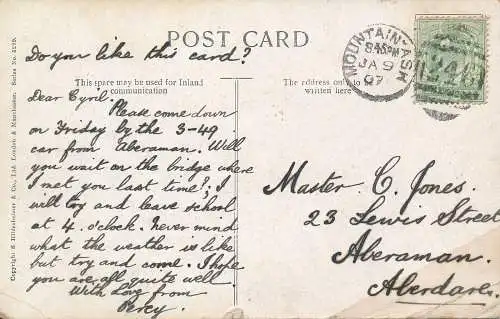 POST CARD
Do you like this card?
This space may be used for Inland
communication
The address only to
written here
Dear Cyril.
Please come down
on Friday by the 3-49
car from Aberaman. Will
you wait on the bridge where
I met you last time?; I
will try and leave school
at 4. o'clock. Never mind
what the weather is like
but try and come. I hope
you are all quite well.
With Love from
Percy.
Master C. Jones.
23 Lewis Street
Aberaman.
Aberdare.
MOUNTAIN-ASH
JA 9
07
Copyright © Hildesheimer & Co., Ltd. London & Manchester. Series No.